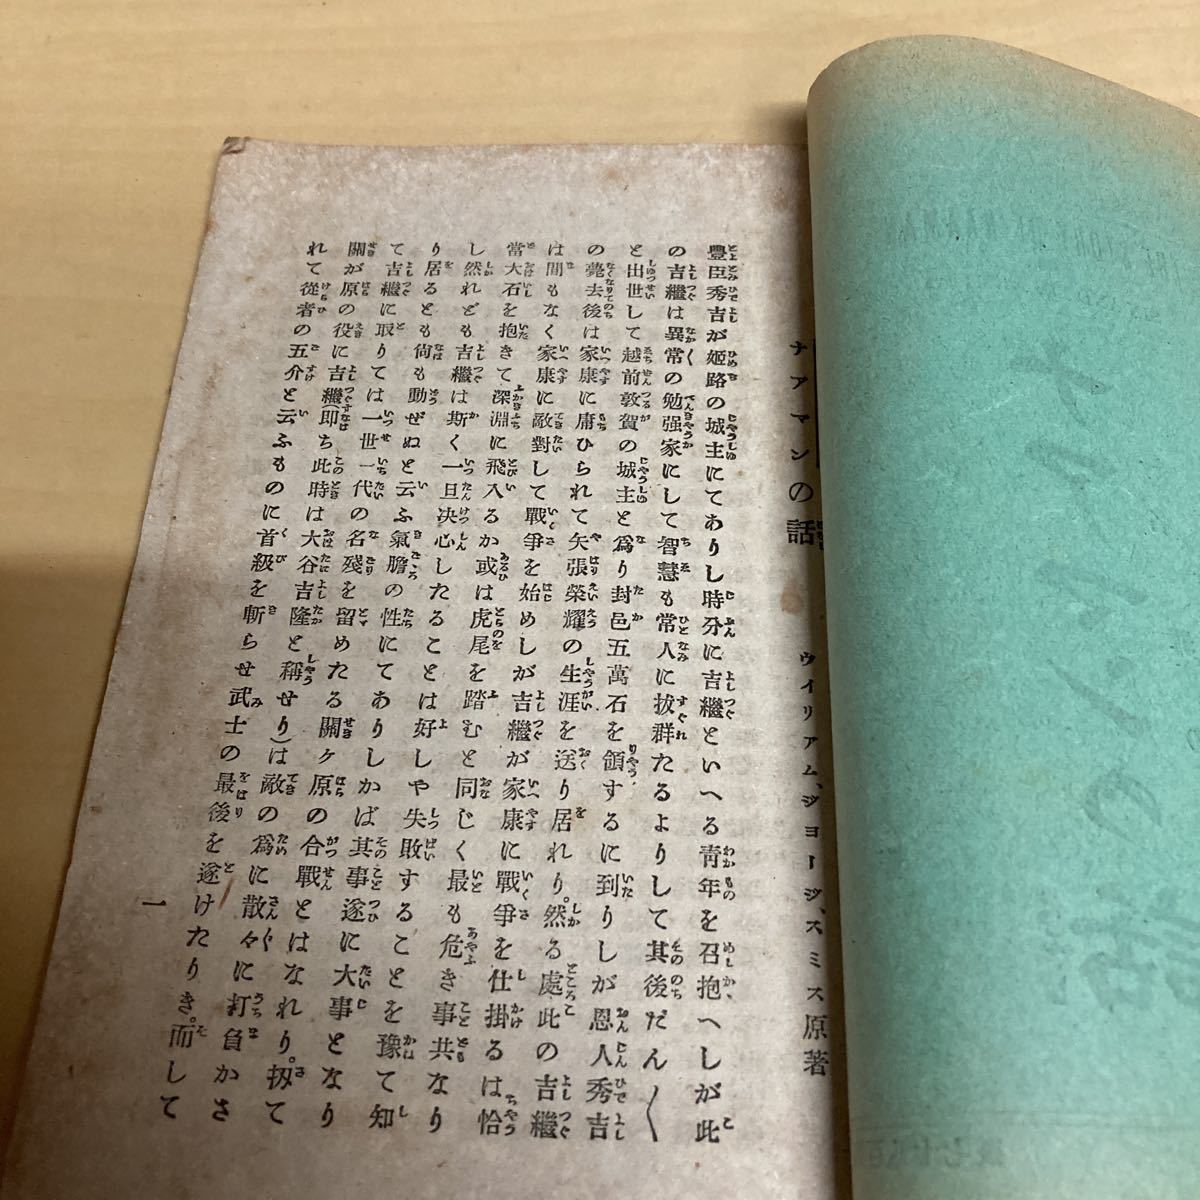 ナアマンの話
ウイリアム、ジヨージ、スミス原著
豐臣秀吉が姬路の城主にてありし時分に吉繼といへる靑年を召抱へしが此
の吉繼は異常の勉强家にして智慧も常人に拔群たるよりして其後だん〱
と出世して越前敦賀の城主と爲り封邑五萬石を領するに到りしが恩人秀吉
の薨去後は家康に庸ひられて矢張榮耀の生涯を送り居れり。然る處此の吉繼
は間もなく家康に敵對して戰爭を始めしが吉繼が家康に戰爭を仕掛るは恰
當大石を抱きて深淵に飛入るか或は虎尾を踏むと同じく最も危き事共なり
し然れども吉繼は斯く一旦决心したることは好しや失敗することを豫て知
り居るとも尙も動ぜぬと云ふ氣膽の性にてありしかば其事遂に大事となり
て吉繼に取りては一世一代の名殘を留めたる關ヶ原の合戰とはなれり。扨て
關が原の役に吉繼(即ち此時は大谷吉隆と稱せり)は敵の爲に散々に打負かさ
れて從者の五介と云ふものに首級を斬らせ武士の最後を遂けたりき。而して
一